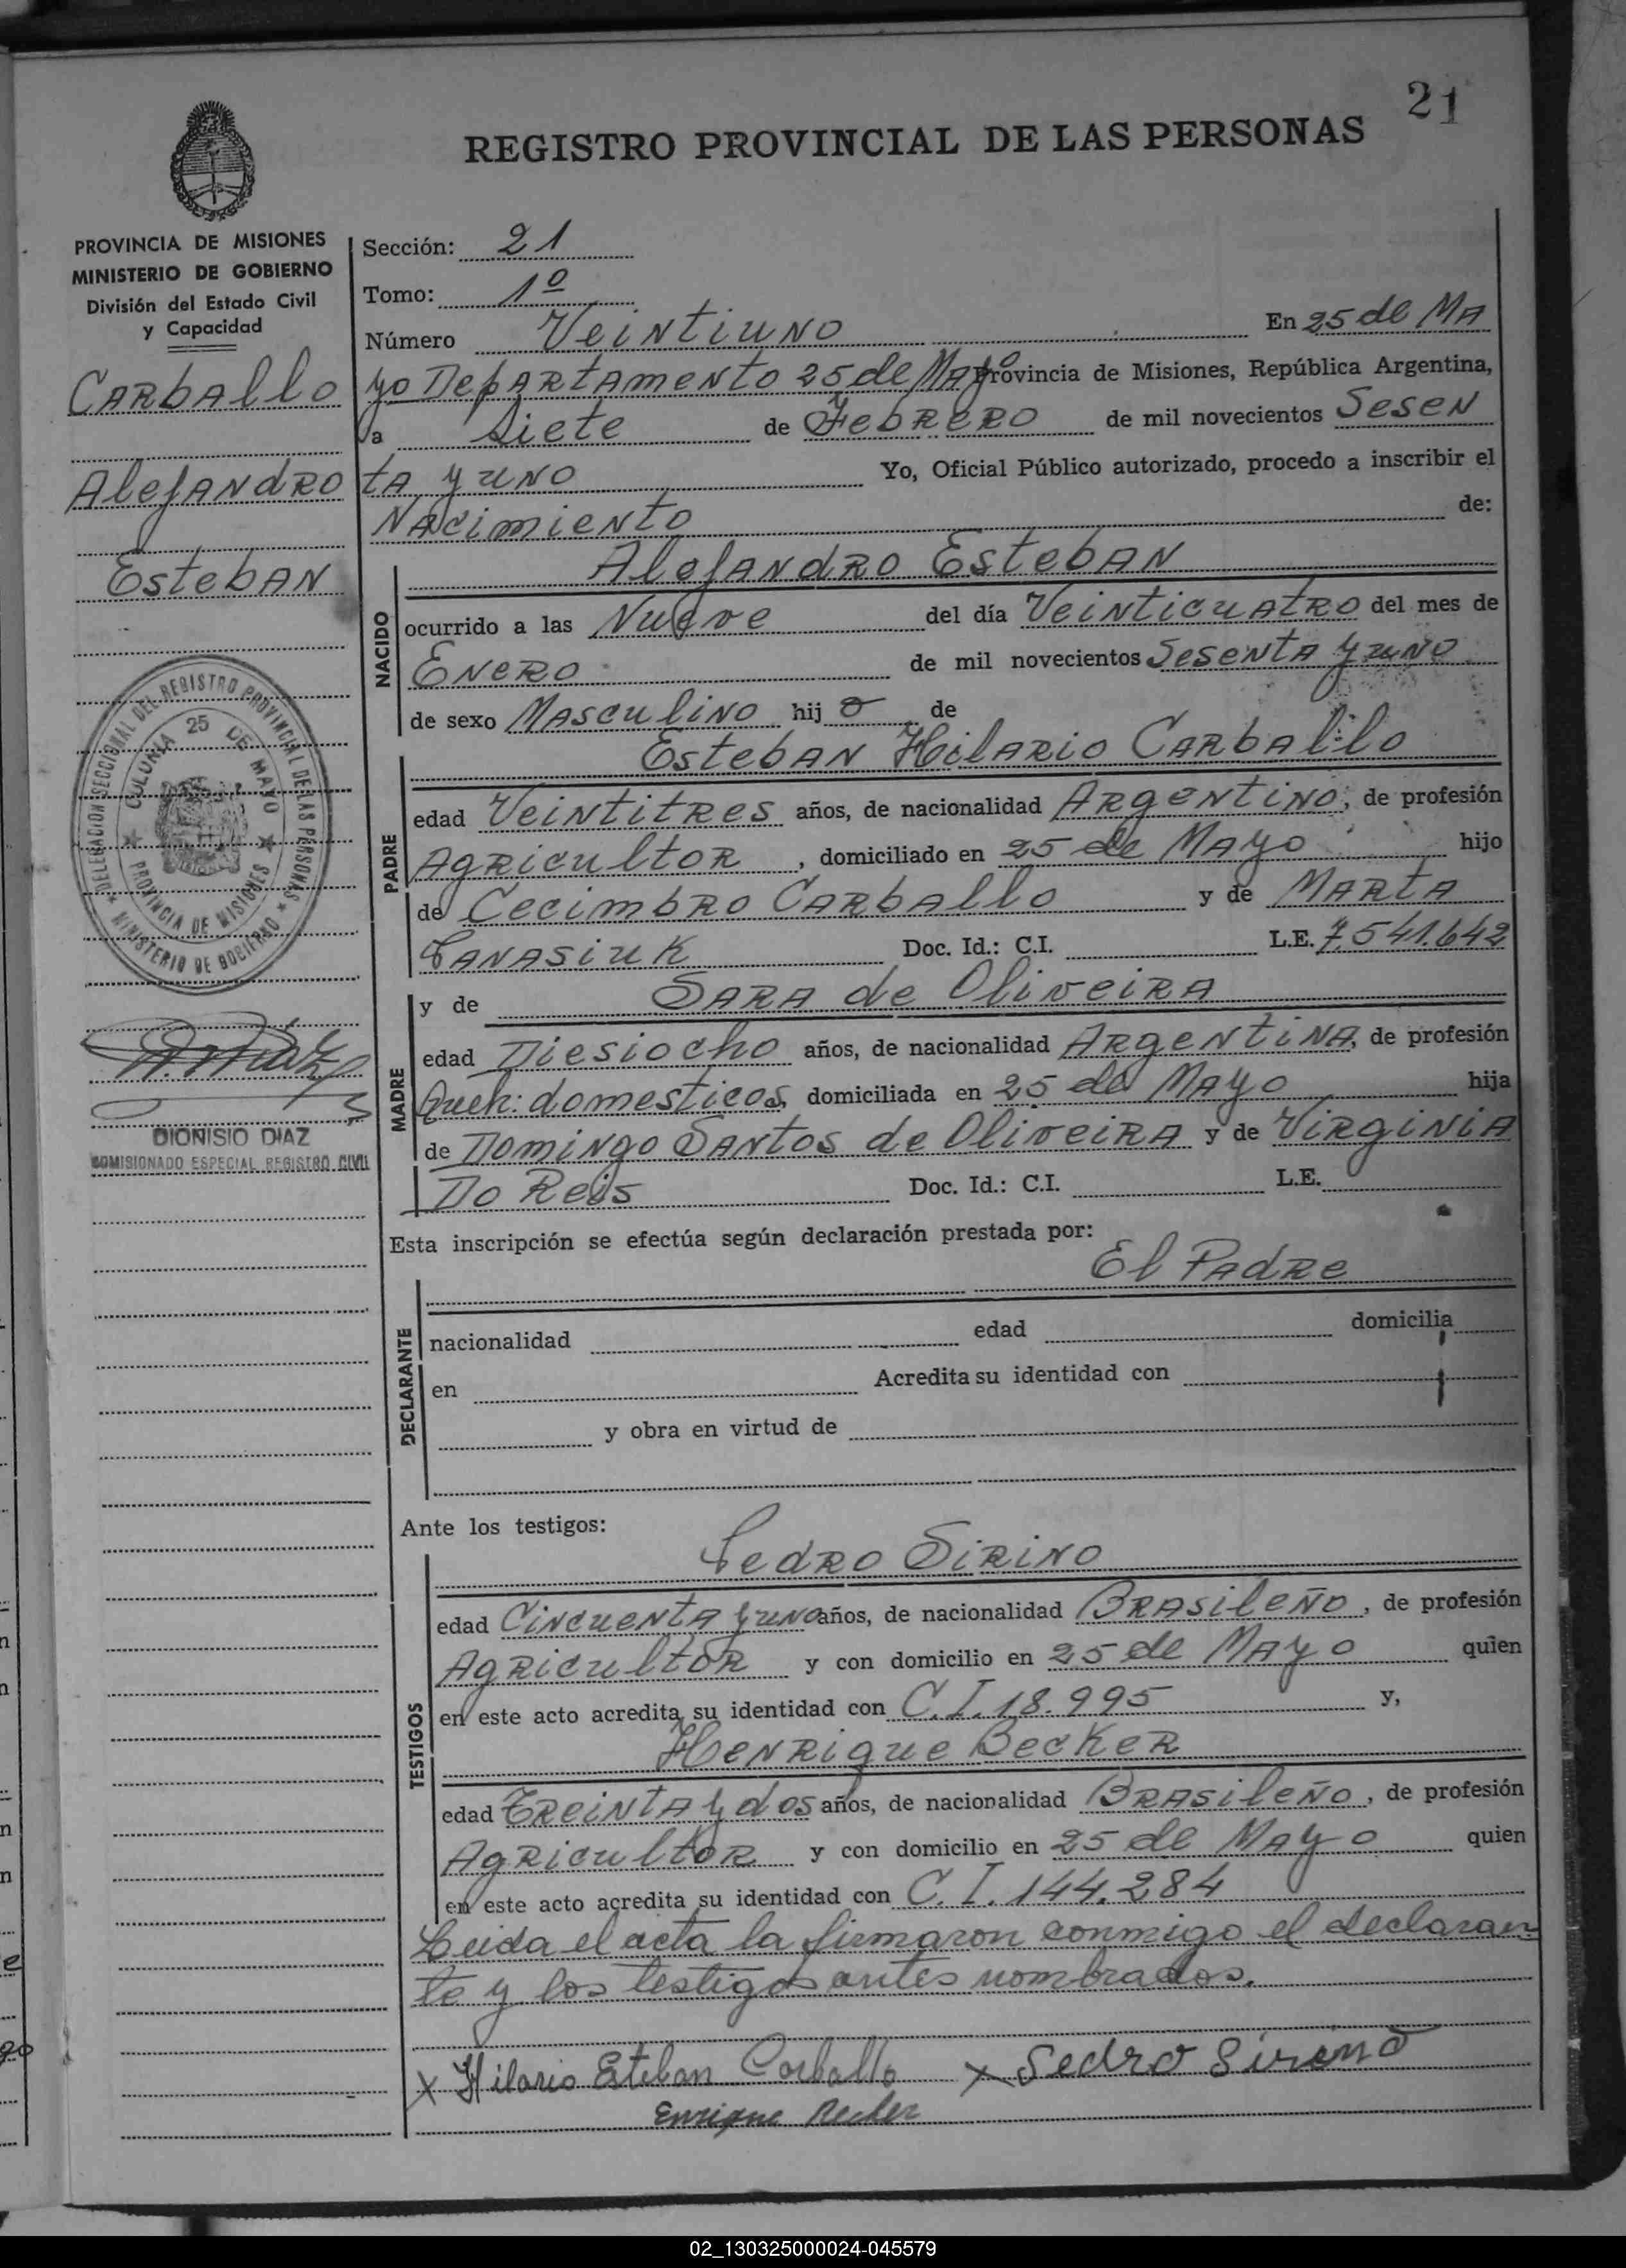 21
REGISTRO PROVINCIAL DE LAS PERSONAS
PROVINCIA DE MISIONES
MINISTERIO DE GOBIERNO
División del Estado Civil
y Capacidad
Carballo
Alejandro
Esteban
DELEGACION SECCIONAL DEL REGISTRO PROVINCIAL DE LAS PERSONAS
MINISTERIO DE GOBIERNO
COLONIA 25 DE MAYO
PROVINCIA DE MISIONES
DIONISIO DIAZ
COMISIONADO ESPECIAL REGISTRO CIVIL
Sección: 21
Tomo: 1º
Número Veintiuno En 25 de Ma
yo Departamento 25 de Mayo Provincia de Misiones, República Argentina,
a Siete de Febrero de mil novecientos Sesen
ta y uno Yo, Oficial Público autorizado, procedo a inscribir el
Nacimiento de:
Alejandro Esteban
NACIDO
ocurrido a las Nueve del día Veinticuatro del mes de
Enero de mil novecientos Sesenta y uno
de sexo Masculino hij o de
Esteban Hilario Carballo
PADRE
edad Veintitres años, de nacionalidad Argentino, de profesión
Agricultor, domiciliado en 25 de Mayo hijo
de Cecimbro Carballo y de Marta
Tanasiuk Doc. Id.: C.I. L.E. 7.541.642
y de Sara de Oliveira
MADRE
edad Diesiocho años, de nacionalidad Argentina, de profesión
Queh: domesticos, domiciliada en 25 de Mayo hija
de Domingo Santos de Oliveira y de Virginia
Do Reis Doc. Id.: C.I. L.E.
Esta inscripción se efectúa según declaración prestada por:
El Padre
DECLARANTE
nacionalidad edad domicilia
en Acredita su identidad con
y obra en virtud de
Ante los testigos:
Pedro Sirino
TESTIGOS
edad Cincuenta y uno años, de nacionalidad Brasileño, de profesión
Agricultor y con domicilio en 25 de Mayo quien
en este acto acredita su identidad con C.I. 18.995 y,
Henrique Becker
edad Treinta y dos años, de nacionalidad Brasileño, de profesión
Agricultor y con domicilio en 25 de Mayo quien
en este acto acredita su identidad con C.I. 144.284
Leida el acta la firmaron conmigo el declaran
te y los testigos antes nombrados.
x Hilario Esteban Carballo x Pedro Sirino
Enrique Becker
02_130325000024-045579